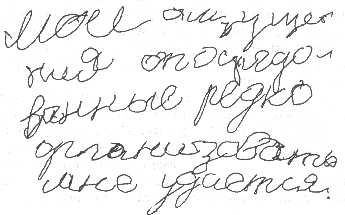 мои ощуще-
ния опосредо-
ванные редко
организовать
мне удается.